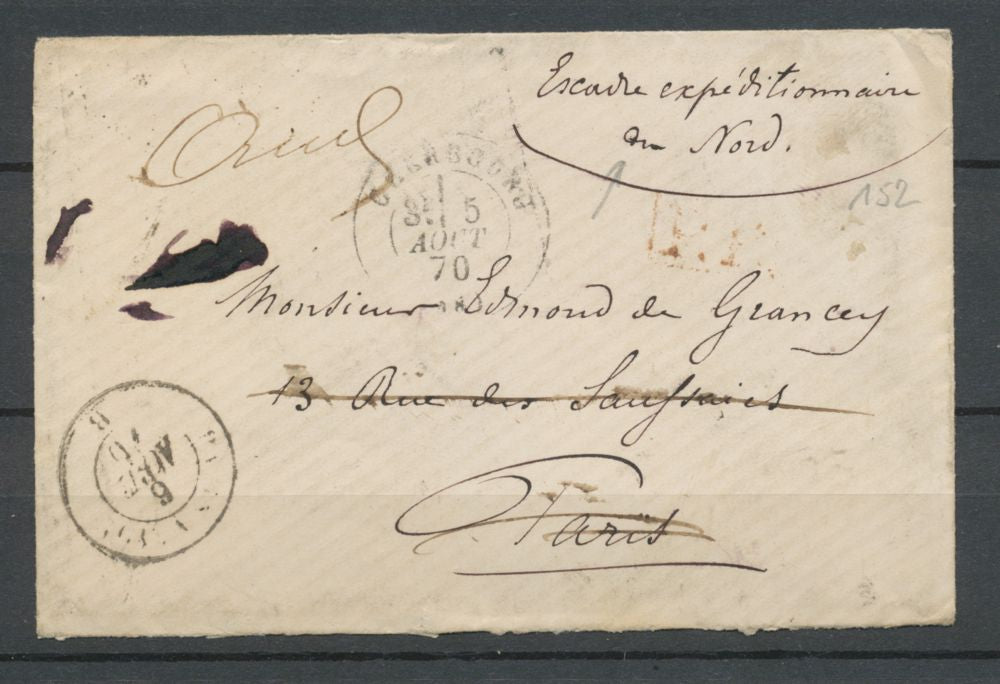 Escadre expéditionnaire
du Nord.
152
CHERBOURG
5
AOUT
70
P.P.
Monsieur Edmond de Grancey
13 Rue des Saussaies
Paris
6
AOUT
70